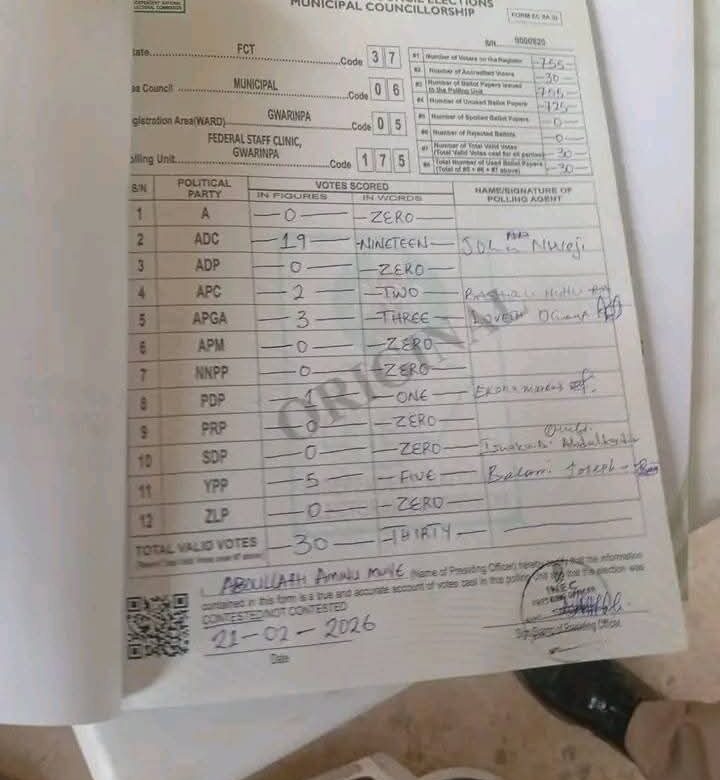 INDEPENDENT NATIONAL
ELECTORAL COMMISSION
COUNCIL ELECTIONS
MUNICIPAL COUNCILLORSHIP
FORM EC 8A
S/N 0000820
State. FCT Code 3 7
Area Council MUNICIPAL Code 0 6
Registration Area(WARD) GWARINPA Code 0 5
Polling Unit FEDERAL STAFF CLINIC, GWARINPA Code 1 7 5
#1 Number of Voters on the Register -755-
#2 Number of Accredited Voters -30-
#3 Number of Ballot Papers Issued to the Polling Unit -755-
#4 Number of Unused Ballot Papers -725-
#5 Number of Spoiled Ballot Papers -0-
#6 Number of Rejected Ballots -0-
#7 Number of Total Valid Votes (Total Valid Votes cast for all parties) -30-
#8 Total Number of Used Ballot Papers (Total of #5 + #6 + #7 above) -30-
S/N POLITICAL PARTY VOTES SCORED NAME/SIGNATURE OF POLLING AGENT
IN FIGURES IN WORDS
1 A -0- -ZERO-
2 ADC -19- -NINETEEN- John Nweji
3 ADP -0- -ZERO-
4 APC -2- -TWO-
5 APGA -3- -THREE-
6 APM -0- -ZERO-
7 NNPP -0- -ZERO-
8 PDP -1- -ONE-
9 PRP -0- -ZERO-
10 SDP -0- -ZERO-
11 YPP -5- -FIVE- Joseph
12 ZLP -0- -ZERO-
TOTAL VALID VOTES -30- -THIRTY-
ORIGINAL
I, ABDULLAHI AMINU (Name of Presiding Officer) hereby certify that the information
contained in this form is a true and accurate account of votes cast in this polling unit and that the election was
CONTESTED/NOT CONTESTED
21-02-2026
Date
INEC
PRESIDING OFFICER
Signature of Presiding Officer